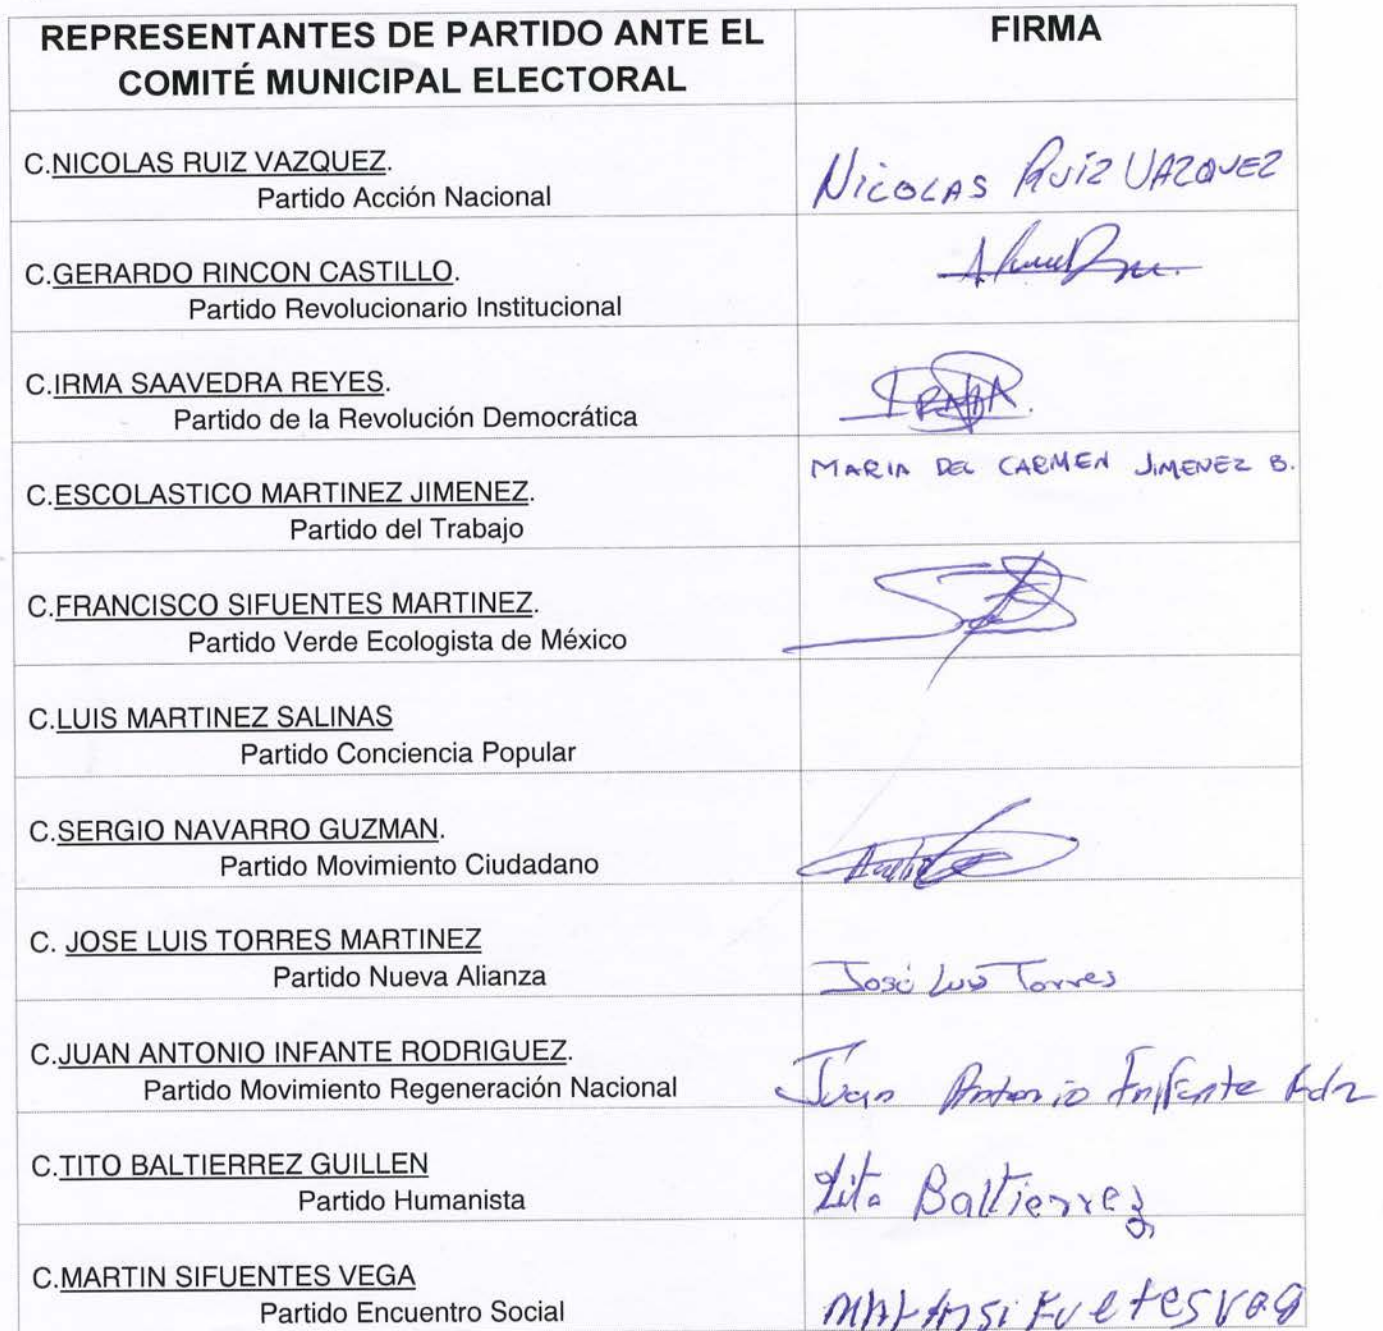 REPRESENTANTES DE PARTIDO ANTE EL
COMITÉ MUNICIPAL ELECTORAL
FIRMA
C.NICOLAS RUIZ VAZQUEZ.
Partido Acción Nacional
NicOLAS RUiz VAZQUEZ
C.GERARDO RINCON CASTILLO.
Partido Revolucionario Institucional
C.IRMA SAAVEDRA REYES.
Partido de la Revolución Democrática
C.ESCOLASTICO MARTINEZ JIMENEZ.
Partido del Trabajo
MARIA DEL CARMEN JIMENEZ B.
C.FRANCISCO SIFUENTES MARTINEZ.
Partido Verde Ecologista de México
C.LUIS MARTINEZ SALINAS
Partido Conciencia Popular
C.SERGIO NAVARRO GUZMAN.
Partido Movimiento Ciudadano
C. JOSE LUIS TORRES MARTINEZ
Partido Nueva Alianza
José Luis Torres
C.JUAN ANTONIO INFANTE RODRIGUEZ.
Partido Movimiento Regeneración Nacional
Juan Antonio Infante
C.TITO BALTIERREZ GUILLEN
Partido Humanista
Tito Baltierrez
C.MARTIN SIFUENTES VEGA
Partido Encuentro Social